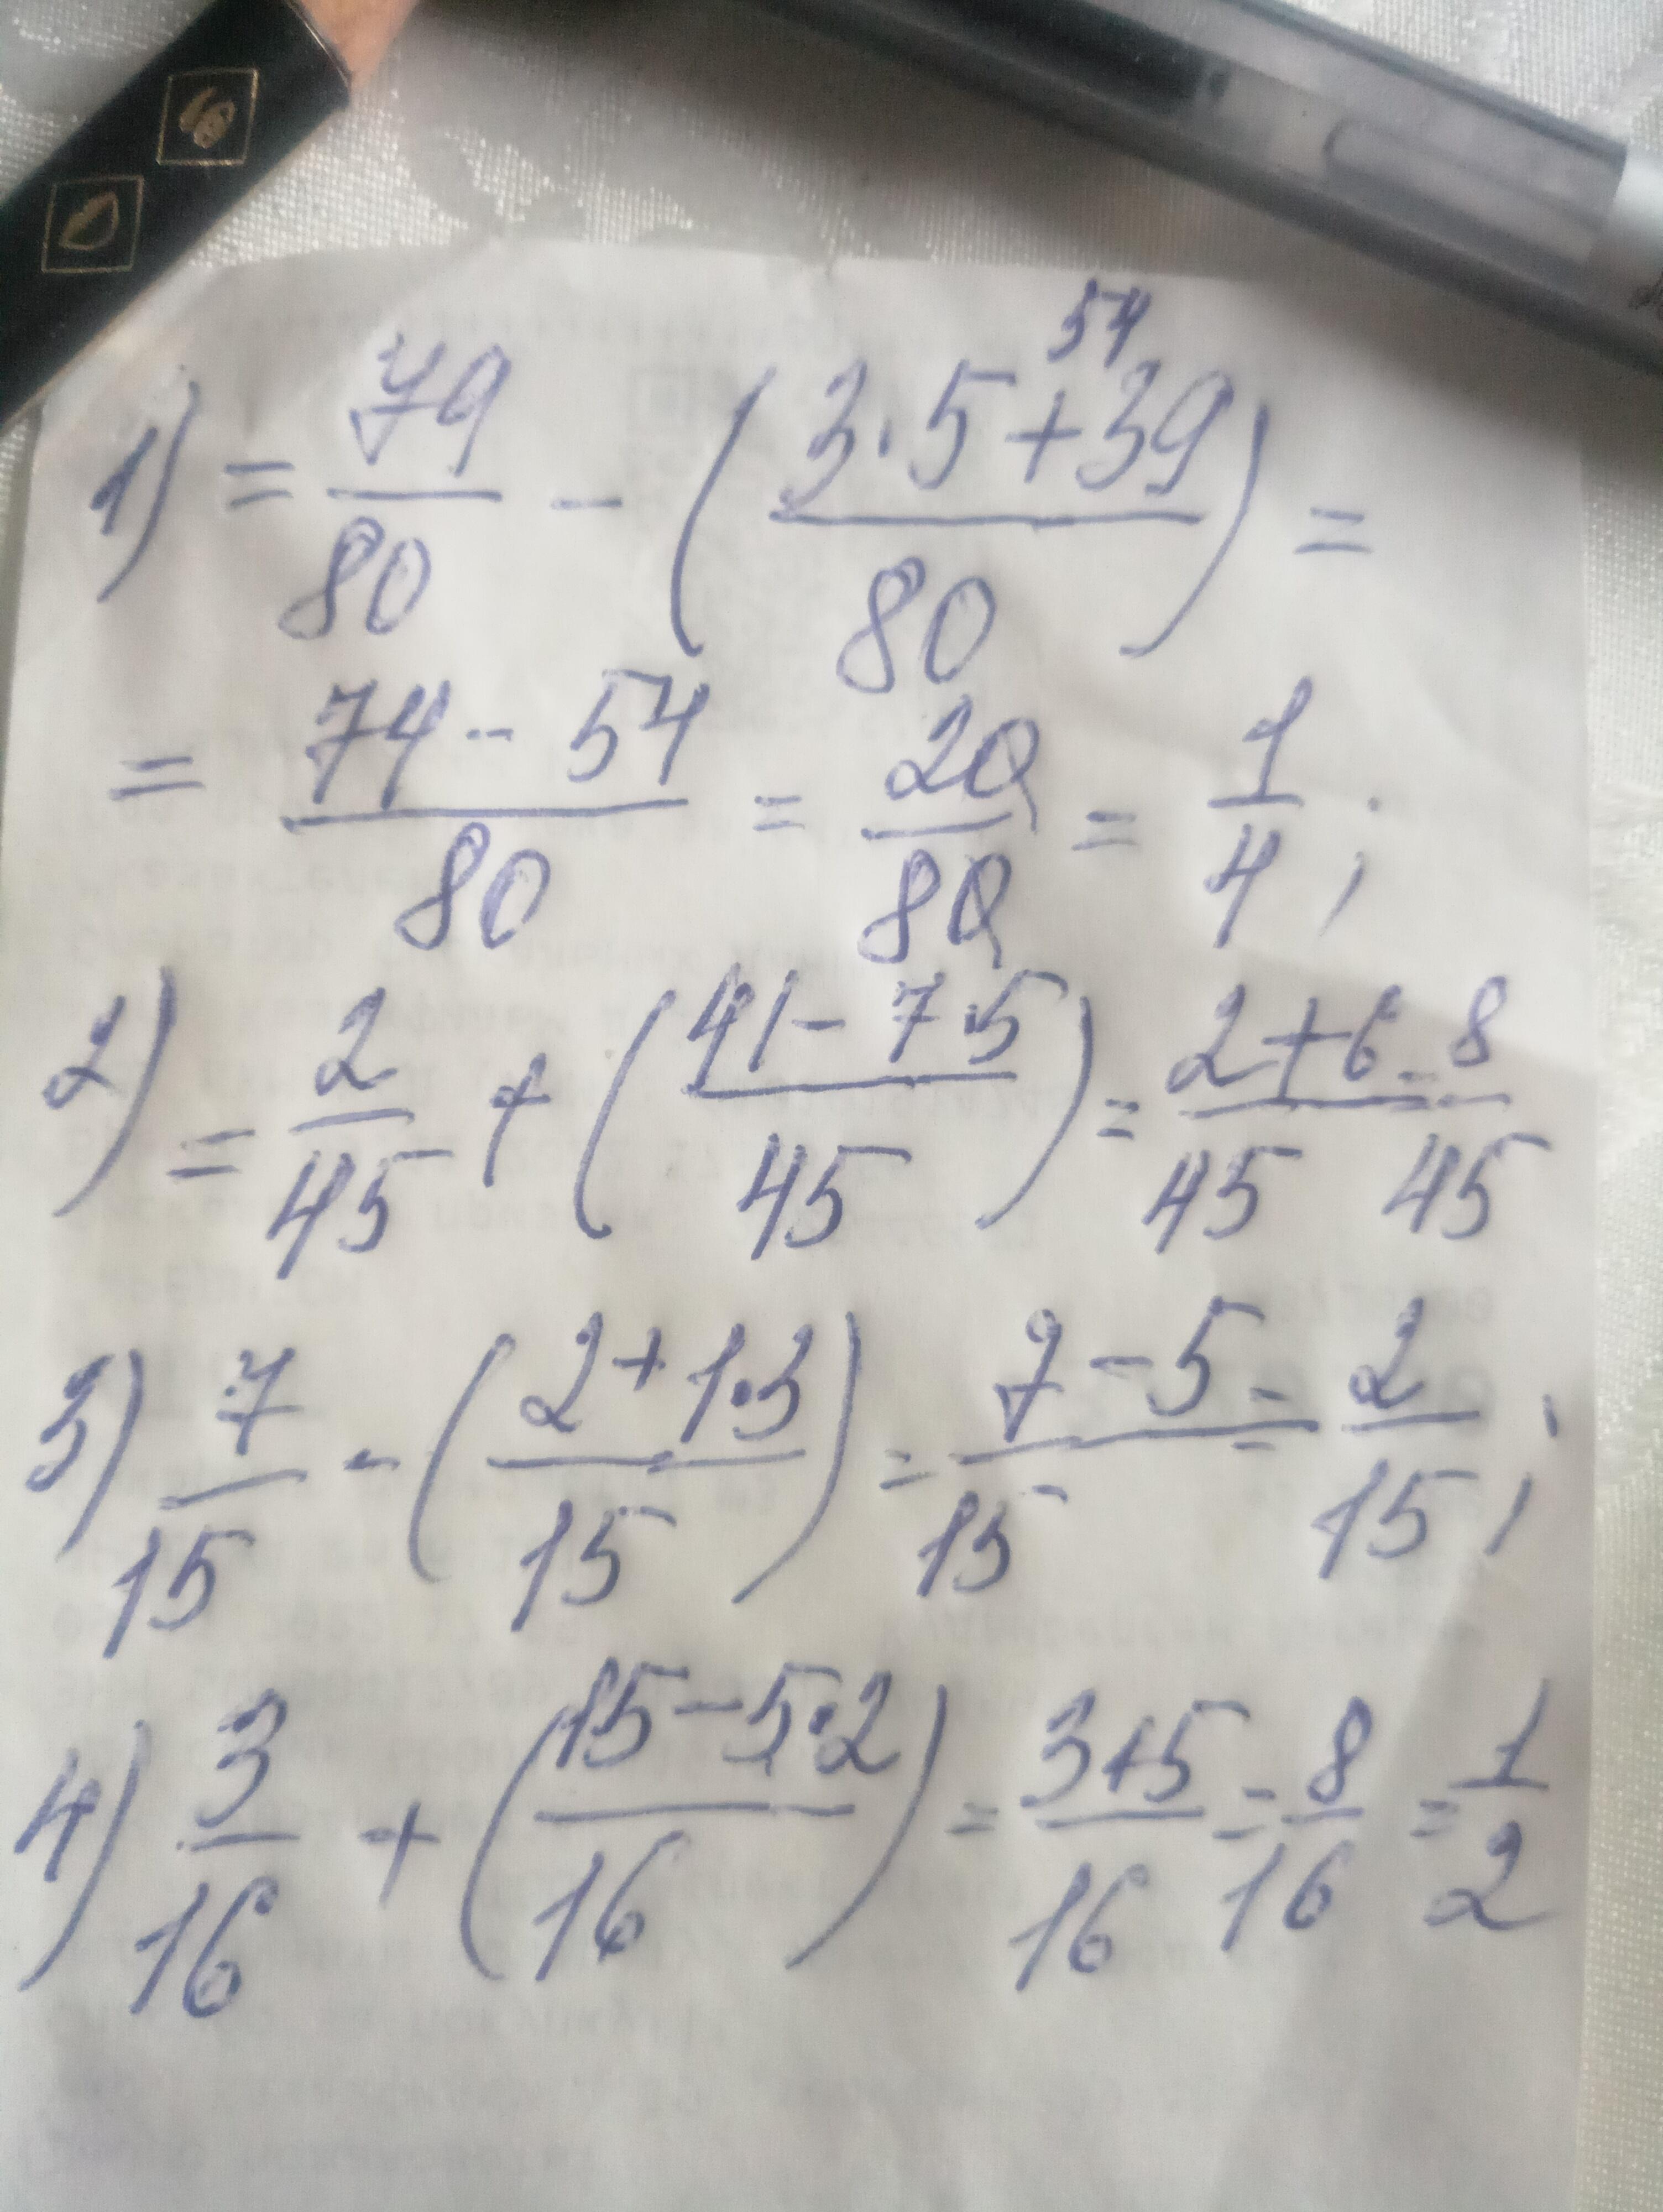 54
1) = 79/80 - (3·5+39/80) =
= 74-54/80 = 20/80 = 1/4;
2) = 2/45 + (41-7·5/45) = 2+6/45 = 8/45
3) 7/15 - (2+1·3/15) = 7-5/15 = 2/15;
4) 3/16 + (15-5·2/16) = 3+5/16 = 8/16 = 1/2